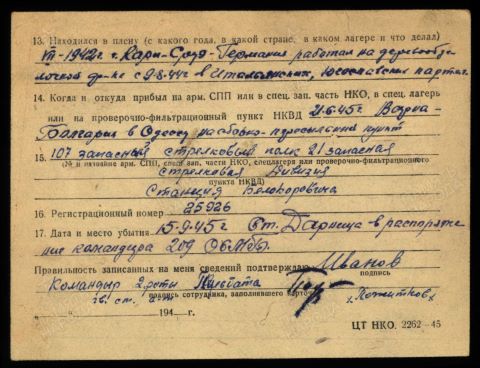 13. Находился в плену (с какого года, в какой стране, в каком лагере и что делал)
VII-1942г. г. Германия работал на деревообде
лочной ф-ке с 9-8-44г в Итальянских, Югославских партиз.
14. Когда и откуда прибыл на арм. СПП или в спец. зап. часть НКО, в спец. лагерь
или на проверочно-фильтрационный пункт НКВД 21.6.45г Варна-
Болгария в Одессу на сборно-пересыльный пункт
15. 107 запасный стрелковый полк 21 запасная
(№ и название арм. СПП, спец. зап. части НКО, спецлагеря или проверочно-фильтрационного
стрелковая дивизия
пункта НКВД)
Станция Белокоровичи
16. Регистрационный номер 25926
17. Дата и место убытия 15-9-45г Ст. Дарница в распоряже
ние командира 209
Правильность записанных на меня сведений подтверждаю Иванов
подпись
Командир 2 роты
подпись сотрудника, заполнившего карточку
194 г.
ЦТ НКО. 2262—45